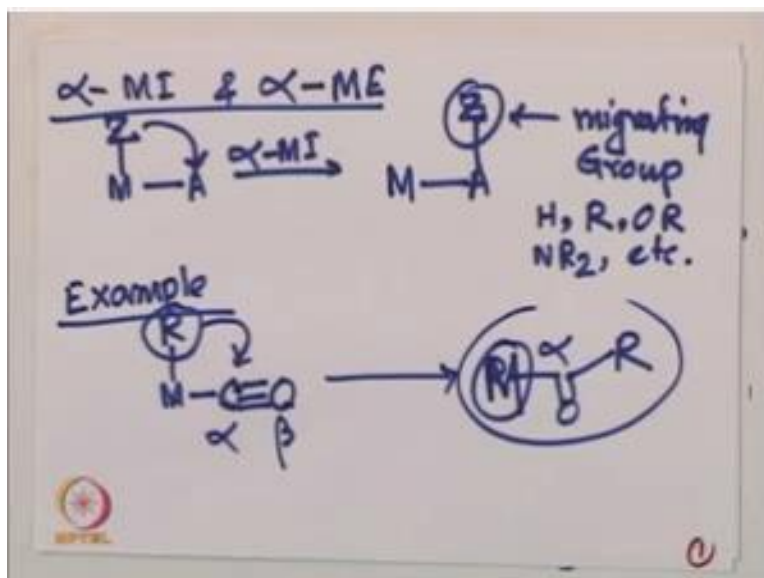 α-MI & α-ME
Z
M—A
α-MI
Z
M—A
← migrating
Group
H, R, OR
NR2, etc.
Example
R
M—C≡O
α β
M
α
R
O
NPTEL